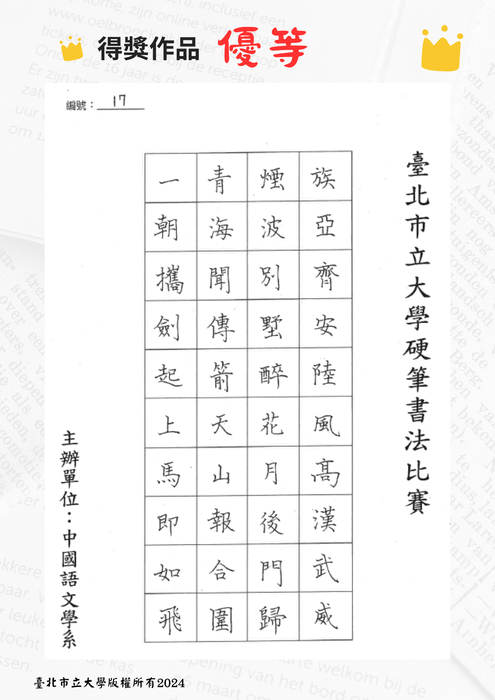 得獎作品 優等
編號：17
臺北市立大學硬筆書法比賽
族亞齊安陸風高漢武威
煙波別墅醉花月後門歸
青海聞傳箭天山報合圍
一朝攜劍起上馬即如飛
主辦單位：中國語文學系
臺北市立大學版權所有2024